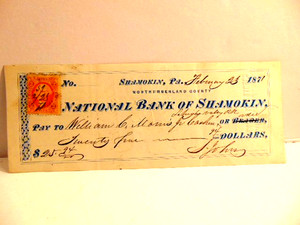 No. SHAMOKIN, PA. February 23 1871
NORTHUMBERLAND COUNTY
NATIONAL BANK OF SHAMOKIN,
PAY TO William C. Morris Jr Cashier, OR BEARER,
Twenty five DOLLARS,
$ 25 John